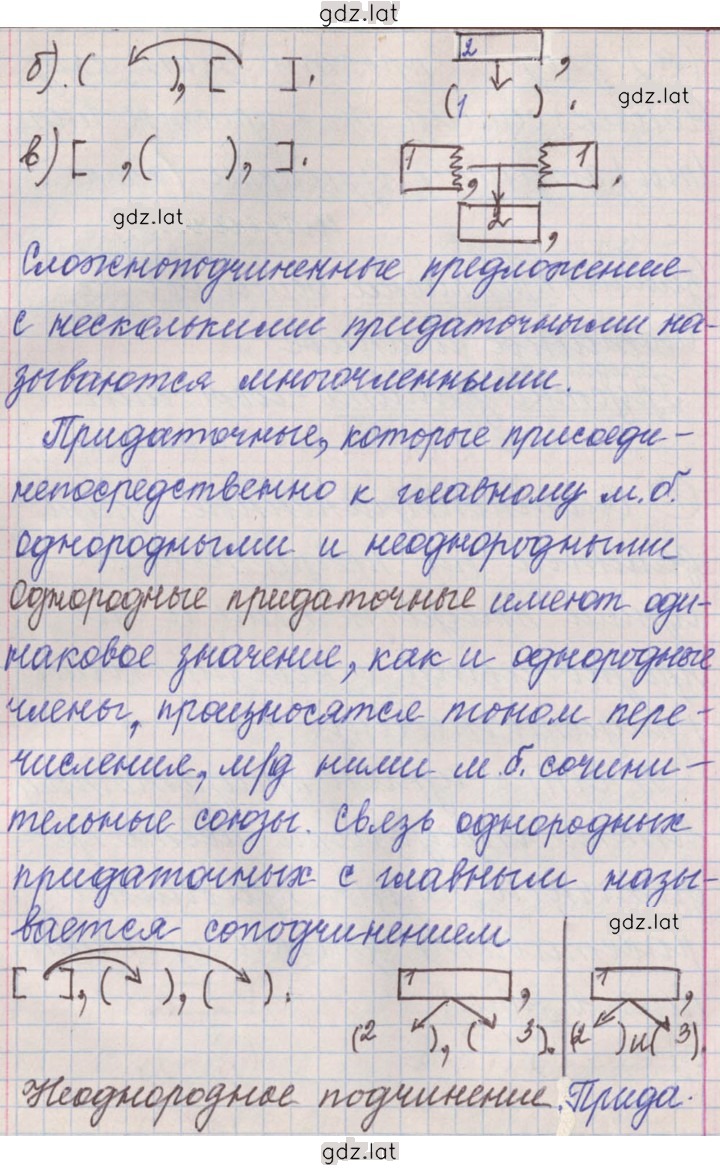 gdz.lat
б). ( ), [ ]. 2 ,
(1 ) . gdz.lat
в) [ , ( ), ]. 1 , 1 .
gdz.lat 2 ,
Сложноподчиненные предложение
с несколькими придаточными на-
зываются многочленными.
Придаточные, которые присоеди-
непосредственно к главному м.б.
однородными и неоднородными
Однородные придаточные имеют оди-
наковое значение, как и однородные
члены, произносятся тоном пере-
числения, м/д ними м.б. сочини-
тельные союзы. Связь однородных
придаточных с главным назы-
вается соподчинением
gdz.lat
[ ], ( ), ( ). 1 , 1 ,
(2 ), ( 3). (2 ) и ( 3).
Неоднородное подчинение. Прида.
gdz.lat